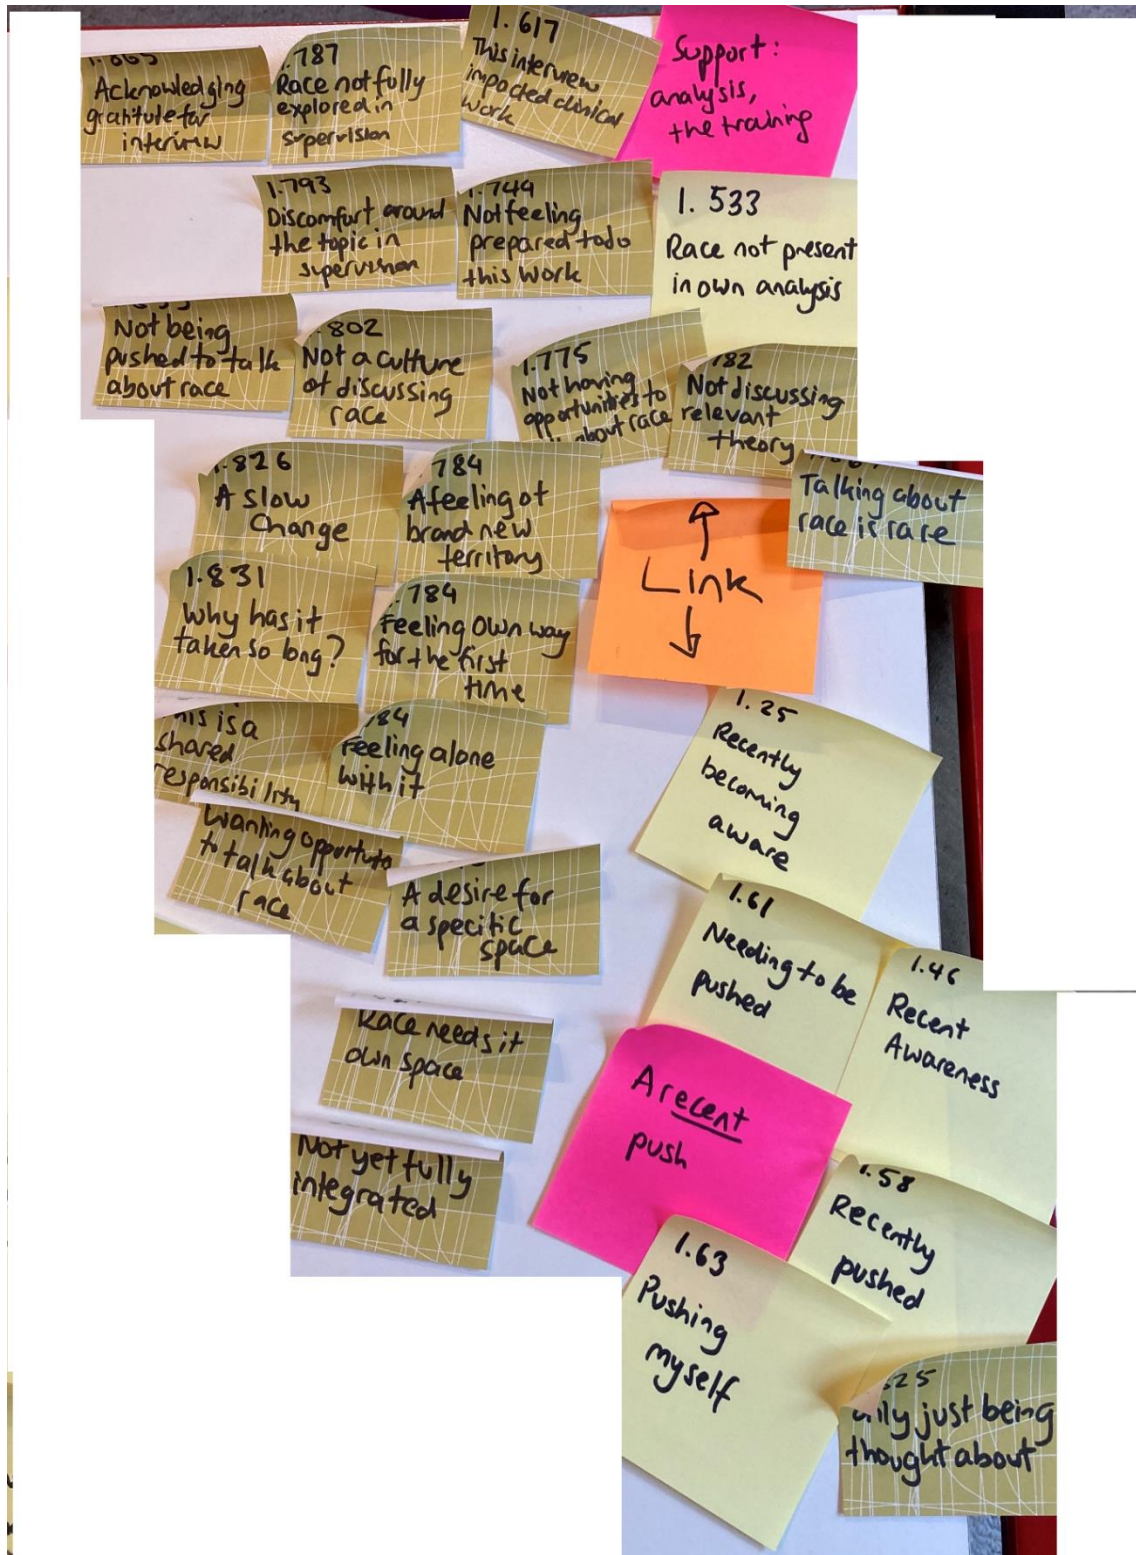 Acknowledging
gratitute for
interview
.787
Race not fully
explored in
supervision
1.617
This interview
impacted clinical
work
Support:
analysis,
the training
1.793
Discomfort around
the topic in
supervision
1.744
Not feeling
prepared to do
this work
1. 533
Race not present
in own analysis
Not being
pushed to talk
about race
.802
Not a culture
of discussing
race
1.775
Not having
opportunities to
about race
782
Not discussing
relevant
theory
Talking about
race is rare
1.826
A slow
Change
784
A feeling of
brand new
territory
Link
1.831
Why has it
taken so long?
.784
Feeling own way
for the first
time
This is a
shared
responsibility
784
Feeling alone
with it
1.25
Recently
becoming
aware
Wanting
to talk about
race
A desire for
a specific
space
1.61
Needing to be
pushed
1.46
Recent
Awareness
Race needs it
own space
A recent
push
Not yet fully
integrated
1.58
Recently
pushed
1.63
Pushing
myself
25
only just being
thought about